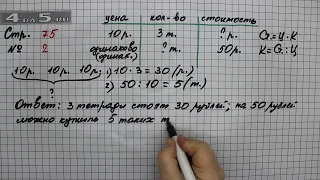 4DA5.RU
Стр. 75
№ 2
цена кол-во стоимость
10р. 3 т. ? р. С = Ц · К
одинаково (одинак.) ? 50р. К = С : Ц
10р. 10р. 10р.
?
1) 10 · 3 = 30 (р.)
2) 50 : 10 = 5 (т.)
Ответ: 3 тетради стоят 30 рублей; на 50 рублей
можно купить 5 таких т